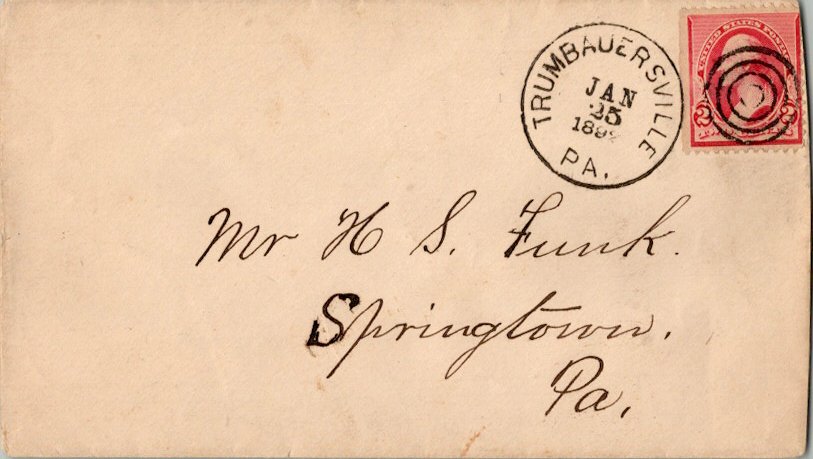 TRUMBAUERSVILLE
JAN
25
PA.
UNITED STATES
2 2
Mr H S. Funk.
Springtown.
Pa,